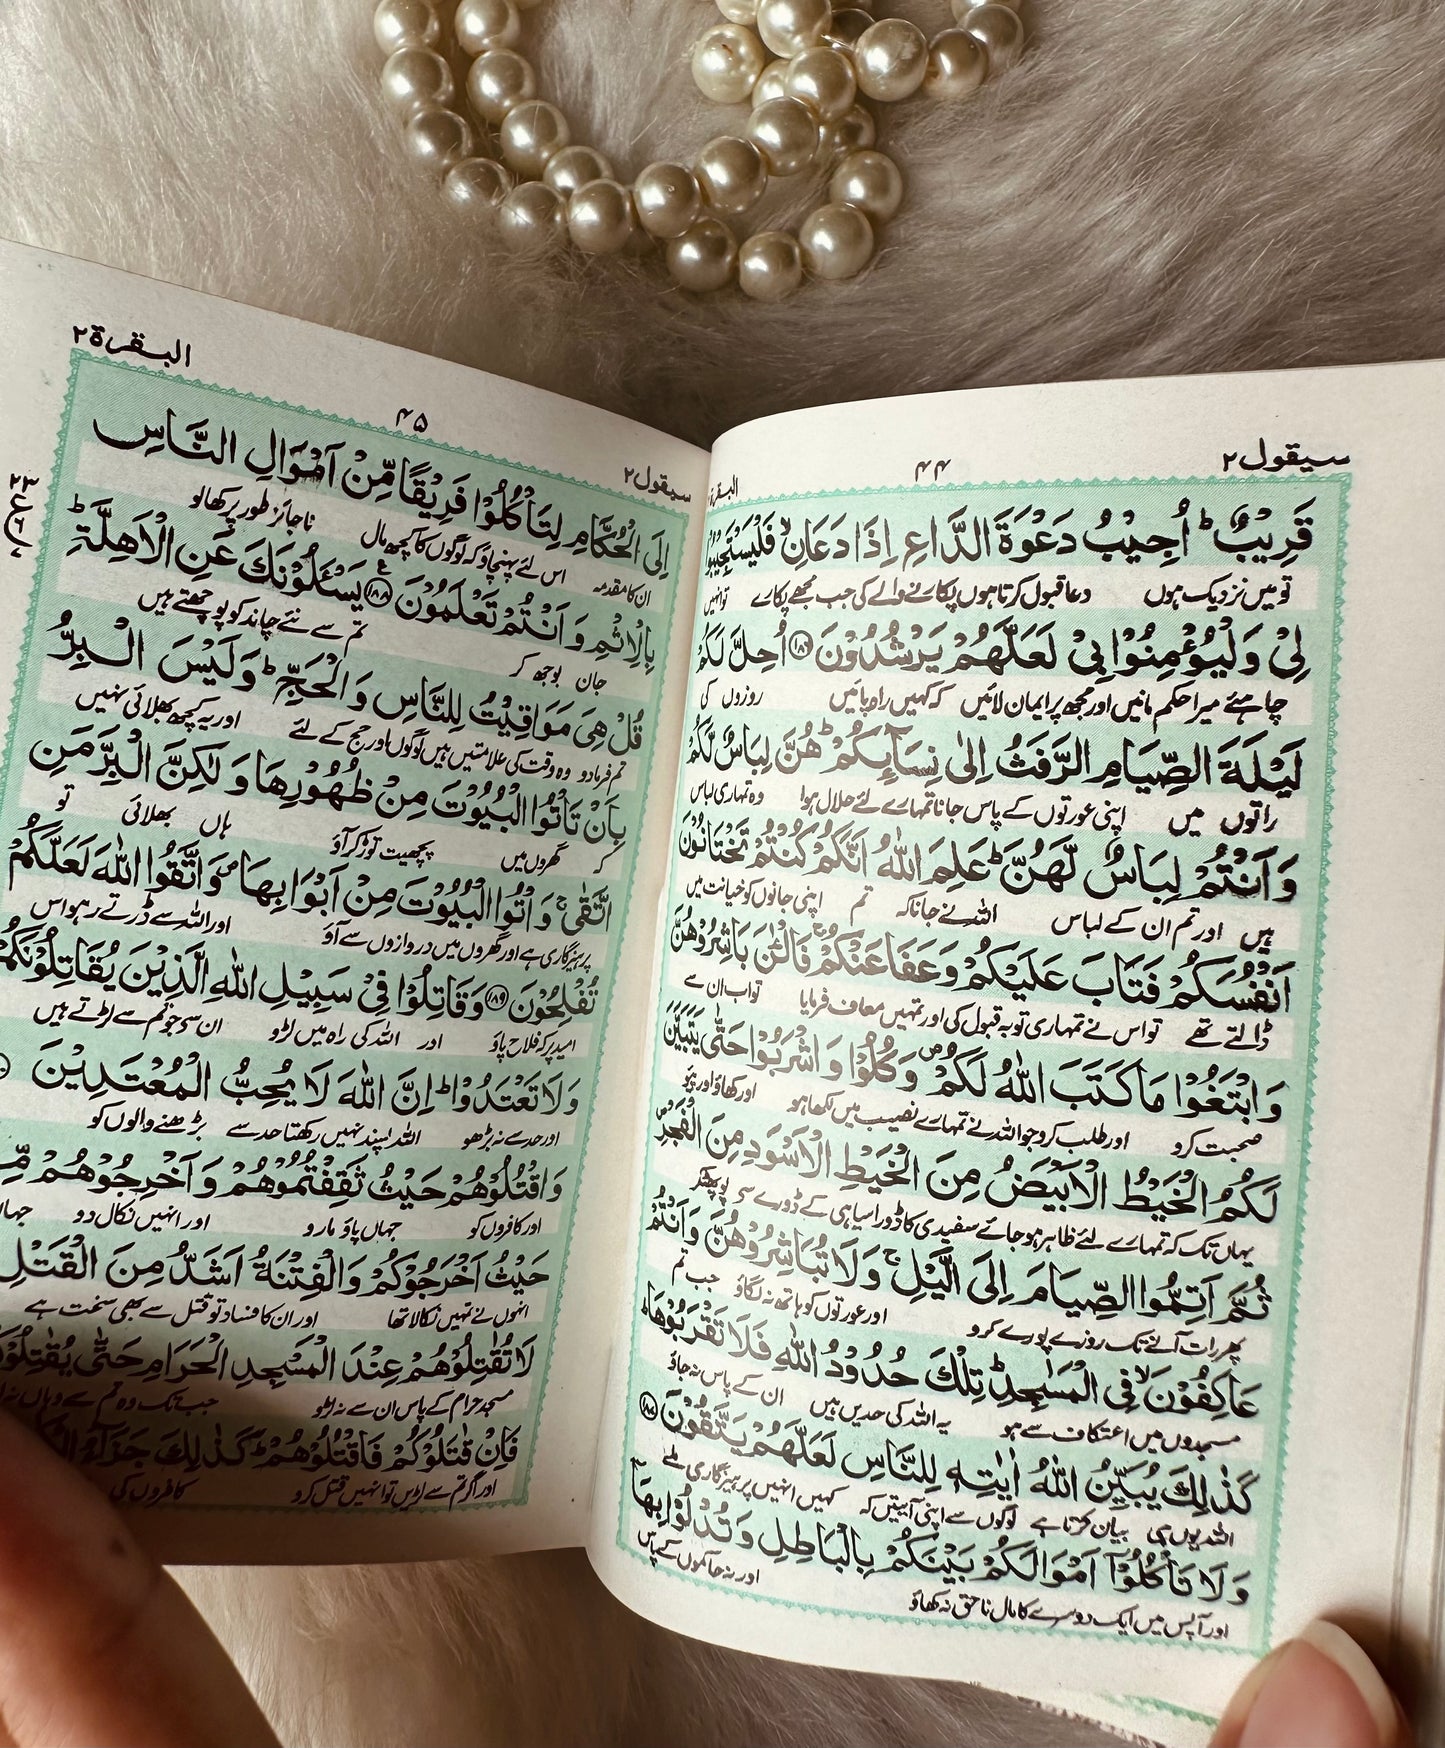 سیقول ۲
۴۴
البقرة
قَرِيْبٌ ؕ اُجِيْبُ دَعْوَةَ الدَّاعِ اِذَا دَعَانِ ۙ فَلْيَسْتَجِيْبُوْا
تو میں نزدیک ہوں دعا قبول کرتا ہوں پکارنے والے کی جب مجھے پکارے تو انہیں
لِيْ وَلْيُؤْمِنُوْا بِيْ لَعَلَّهُمْ يَرْشُدُوْنَ ﴿۱۸۶﴾ اُحِلَّ لَكُمْ
چاہئے میرا حکم مانیں اور مجھ پر ایمان لائیں کہ کہیں راہ پائیں روزوں کی
لَيْلَةَ الصِّيَامِ الرَّفَثُ اِلٰى نِسَآىِٕكُمْ ؕ هُنَّ لِبَاسٌ لَّكُمْ
راتوں میں اپنی عورتوں کے پاس جانا تمہارے لئے حلال ہوا وہ تمہاری لباس
وَاَنْتُمْ لِبَاسٌ لَّهُنَّ ؕ عَلِمَ اللّٰهُ اَنَّكُمْ كُنْتُمْ تَخْتَانُوْنَ
ہیں اور تم ان کے لباس اللہ نے جانا کہ تم اپنی جانوں کو خیانت میں
اَنْفُسَكُمْ فَتَابَ عَلَيْكُمْ وَعَفَا عَنْكُمْ ۚ فَالْـٰٔنَ بَاشِرُوْهُنَّ
ڈالتے تھے تو اس نے تمہاری توبہ قبول کی اور تمہیں معاف فرمایا تو اب ان سے
وَابْتَغُوْا مَا كَتَبَ اللّٰهُ لَكُمْ ۪ وَكُلُوْا وَاشْرَبُوْا حَتّٰى يَتَبَيَّنَ
صحبت کرو اور طلب کرو جو اللہ نے تمہارے نصیب میں لکھا ہو اور کھاؤ اور پیو
لَكُمُ الْخَيْطُ الْاَبْيَضُ مِنَ الْخَيْطِ الْاَسْوَدِ مِنَ الْفَجْرِ ۪
یہاں تک کہ تمہارے لئے ظاہر ہو جائے سفیدی کا ڈورا سیاہی کے ڈورے سے پو پھٹ کر
ثُمَّ اَتِمُّوا الصِّيَامَ اِلَى الَّيْلِ ۚ وَلَا تُبَاشِرُوْهُنَّ وَاَنْتُمْ
پھر رات آنے تک روزے پورے کرو اور عورتوں کو ہاتھ نہ لگاؤ جب تم
عَاكِفُوْنَ ۙ فِي الْمَسٰجِدِ ؕ تِلْكَ حُدُوْدُ اللّٰهِ فَلَا تَقْرَبُوْهَا ؕ
مسجدوں میں اعتکاف سے ہو یہ اللہ کی حدیں ہیں ان کے پاس نہ جاؤ
كَذٰلِكَ يُبَيِّنُ اللّٰهُ اٰيٰتِهٖ لِلنَّاسِ لَعَلَّهُمْ يَتَّقُوْنَ ﴿۱۸۷﴾
اللہ یوں ہی بیان کرتا ہے لوگوں سے اپنی آیتیں کہ کہیں انہیں پرہیزگاری ملے
وَلَا تَاْكُلُوْٓا اَمْوَالَكُمْ بَيْنَكُمْ بِالْبَاطِلِ وَتُدْلُوْا بِهَآ
اور آپس میں ایک دوسرے کا مال ناحق نہ کھاؤ اور نہ حاکموں کے پاس
سیقول ۲
۴۵
البقرة ۲
اِلَى الْحُكَّامِ لِتَاْكُلُوْا فَرِيْقًا مِّنْ اَمْوَالِ النَّاسِ
ان کا مقدمہ اس لئے پہنچاؤ کہ لوگوں کا کچھ مال ناجائز طور پر کھا لو
بِالْاِثْمِ وَاَنْتُمْ تَعْلَمُوْنَ ﴿۱۸۸﴾ يَسْـَٔلُوْنَكَ عَنِ الْاَهِلَّةِ ؕ
جان بوجھ کر تم سے نئے چاند کو پوچھتے ہیں
قُلْ هِيَ مَوَاقِيْتُ لِلنَّاسِ وَالْحَجِّ ؕ وَلَيْسَ الْبِرُّ
تم فرما دو وہ وقت کی علامتیں ہیں لوگوں اور حج کے لئے اور یہ کچھ بھلائی نہیں
بِاَنْ تَاْتُوا الْبُيُوْتَ مِنْ ظُهُوْرِهَا وَلٰكِنَّ الْبِرَّ مَنِ
کہ گھروں میں پچھیت توڑ کر آؤ ہاں بھلائی تو
اتَّقٰى ۚ وَاْتُوا الْبُيُوْتَ مِنْ اَبْوَابِهَا ۪ وَاتَّقُوا اللّٰهَ لَعَلَّكُمْ
پرہیزگاری ہے اور گھروں میں دروازوں سے آؤ اور اللہ سے ڈرتے رہو اس
تُفْلِحُوْنَ ﴿۱۸۹﴾ وَقَاتِلُوْا فِيْ سَبِيْلِ اللّٰهِ الَّذِيْنَ يُقَاتِلُوْنَكُمْ
امید پر کہ فلاح پاؤ اور اللہ کی راہ میں لڑو ان سے جو تم سے لڑتے ہیں
وَلَا تَعْتَدُوْا ؕ اِنَّ اللّٰهَ لَا يُحِبُّ الْمُعْتَدِيْنَ
اور حد سے نہ بڑھو اللہ پسند نہیں رکھتا حد سے بڑھنے والوں کو
وَاقْتُلُوْهُمْ حَيْثُ ثَقِفْتُمُوْهُمْ وَاَخْرِجُوْهُمْ مِّنْ
اور کافروں کو جہاں پاؤ مارو اور انہیں نکال دو جہاں
حَيْثُ اَخْرَجُوْكُمْ وَالْفِتْنَةُ اَشَدُّ مِنَ الْقَتْلِ
انہوں نے تمہیں نکالا تھا اور ان کا فساد تو قتل سے بھی سخت ہے
لَا تُقٰتِلُوْهُمْ عِنْدَ الْمَسْجِدِ الْحَرَامِ حَتّٰى يُقٰتِلُوْ
مسجد حرام کے پاس ان سے نہ لڑو جب تک وہ تم سے وہاں نہ
فَاِنْ قٰتَلُوْكُمْ فَاقْتُلُوْهُمْ ؕ كَذٰلِكَ جَزَآءُ
اور اگر تم سے لڑیں تو انہیں قتل کرو کافروں کی